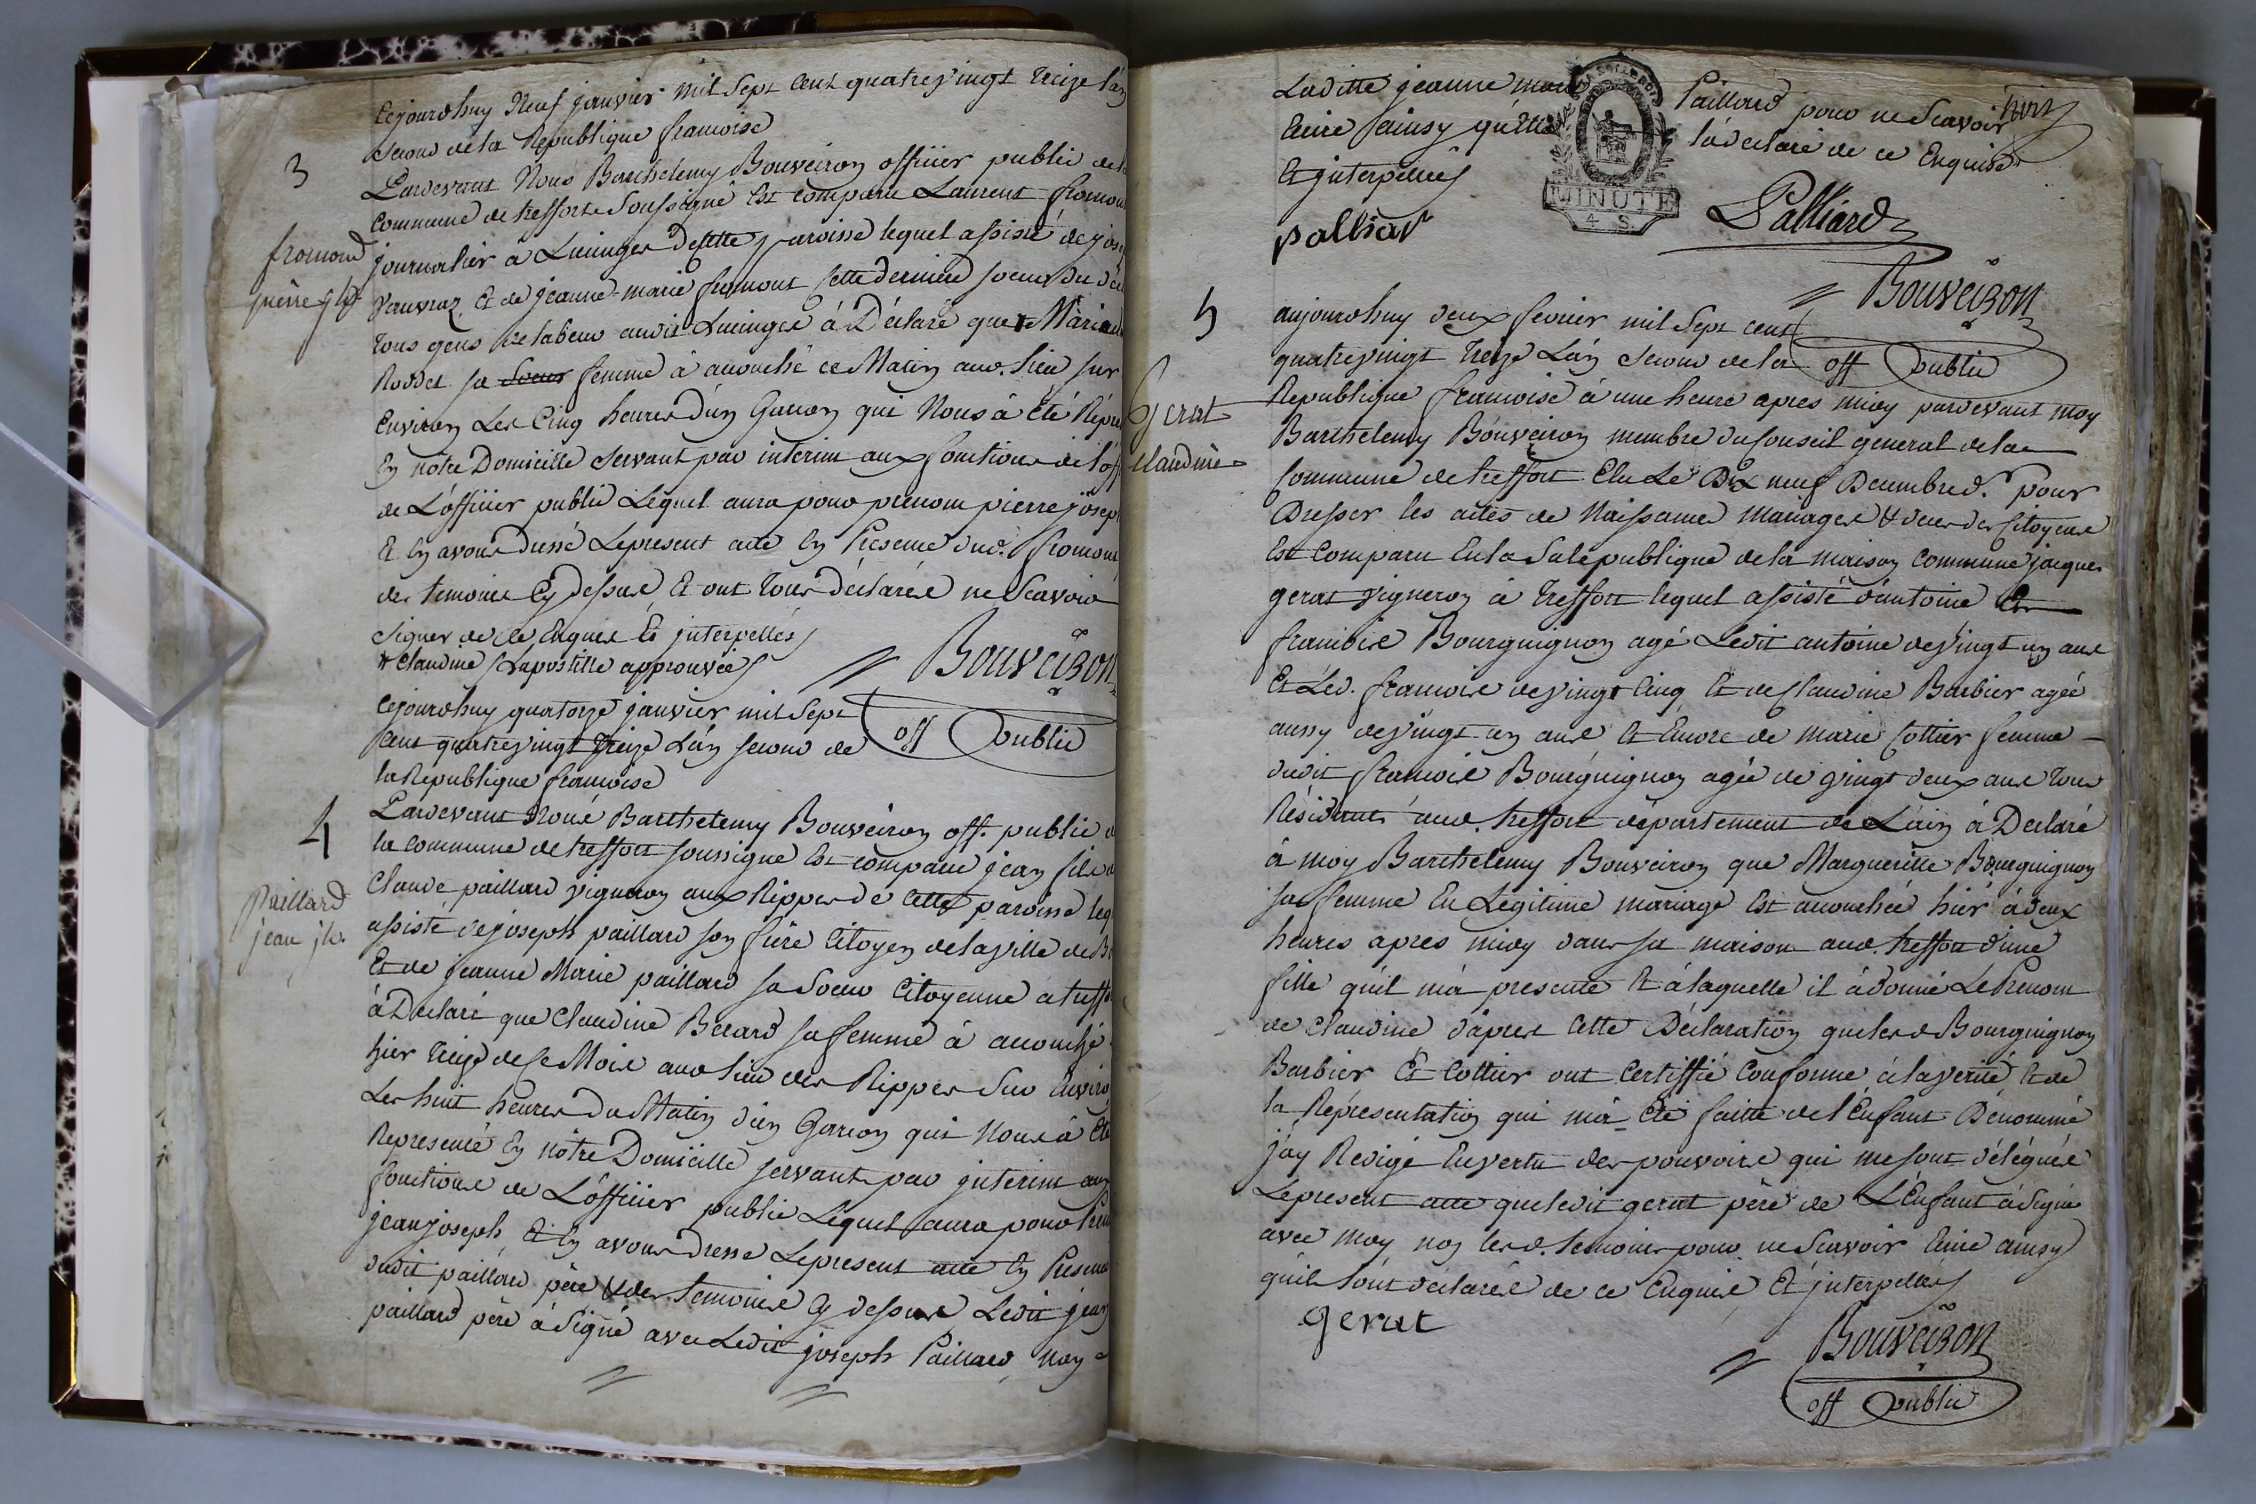 3
fromond
pierre jph
Cejourdhuy Neuf janvier mil Sept Cent quatrevingt treize l'an
second de la Republique francoise
Pardevant Nous Barthelemy Bouveiron officier public de la
Commune de treffort Soussigné Est comparu Laurent fromon
journalier à Lucinges De cette paroisse lequel assisté de jos
vauvraz Et de jeanne marie fromont cette derniere soeur du d
tous gens de labeur audit Lucinges à Déclaré que * Maria
Roddet sa Soeur femme à accouché ce Matin aud. lieu sur
Environ Les Cinq heures d'un Garcon qui Nous à Eté Répré
En notre Domicille servant par interim aux fonctions de l'off
de L'officier public Lequel aura pour prenom pierre joseph
Et En avons dressé Le present acte En Presence dud. fromon
des temoins Cy dessus Et ont tous déclarés ne Scavoir
Signer de ce Enquis Et jnterpellés
* Claudine Lapostille approuvée
Bouveiron
off public
4
Paillard
jean jh.
Cejourdhuy quatorze janvier mil Sept
Cent quatrevingt treize L'an second de
la Republique francoise
Pardevant Nous Barthelemy Bouveiron off. public d
la commune de treffort soussigné Est comparu jean fils d
Claude paillard vigneron aux Rippes de cette paroisse leq
assisté de joseph paillard son frère Citoyen de la ville de B
Et de jeanne Marie paillard sa Soeur Citoyenne à treff
à Declaré que Claudine Berard sa femme à accouché
hier treize de ce Mois aud lieu des Rippes Sur Environ
Les huit heures du Matin d'un Garcon qui Nous à Eté
Representé En nôtre Domicille servant par jnterim aux
fonctions de L'officier public Lequel aura pour Pren
jean joseph Et En avons dressé Le present acte En Presence
dudit paillard père & des temoins Cy dessus Ledit jean
paillard père à Signé avec Ledit joseph Paillard, Non
Laditte jeanne marie Paillard pour ne Scavoir
Ecrire ainsy qu'Elle l'a declaré de ce Enquise
Et jnterpellés
MINUTE
4 S
palliar
Palliard
Bouveiron
off public
5
Gerut
Claudine
aujourdhuy deux fevrier mil Sept cent
quatrevingt treize L'an second de la
Republique francoise à une heure apres midy pardevant moy
Barthelemy Bouveiron membre du Conseil general de la
Commune de treffort Elu Le Dix neuf Decembre d. pour
Dresser les actes de Naissance mariages & deces des Citoyens
Est Comparu En la Sale publique de la maison Commune jacques
gerut vigneron à treffort lequel assisté d'antoine Et
francois Bourguignon agé Ledit antoine de vingt un ans
Et Led. francois de vingt Cinq Et de Claudine Barbier agée
aussy de vingt un ans Et Encore de marie Cottier femme
dudit francois Bourguignon agée de vingt deux ans tous
Résidants aud. treffort département de L'ain à Declaré
à moy Barthelemy Bouveiron que Marguerite Bourguignon
sa femme En Légitime mariage Est accouchée hier à deux
heures apres midy dans sa maison aud. treffort d'une
fille qu'il m'a presenté Et à laquelle il à donné Le Prenom
de Claudine d'apres Cette Déclaration que les d Bourguignon
Barbier Et Cottier ont Certiffié Conforme à la verité Et de
la Réprésentation qui m'a Eté faitte de l'Enfant Dénommé
j'ay Redigé En vertu des pouvoirs qui me sont délégués
Le present acte que ledit gerut père de L'Enfant à Signé
avec moy non les d. temoins pour ne Scavoir Ecrire ainsy
qu'ils l'ont déclarés de ce Enquis Et jnterpellés
gerut
Bouveiron
off public